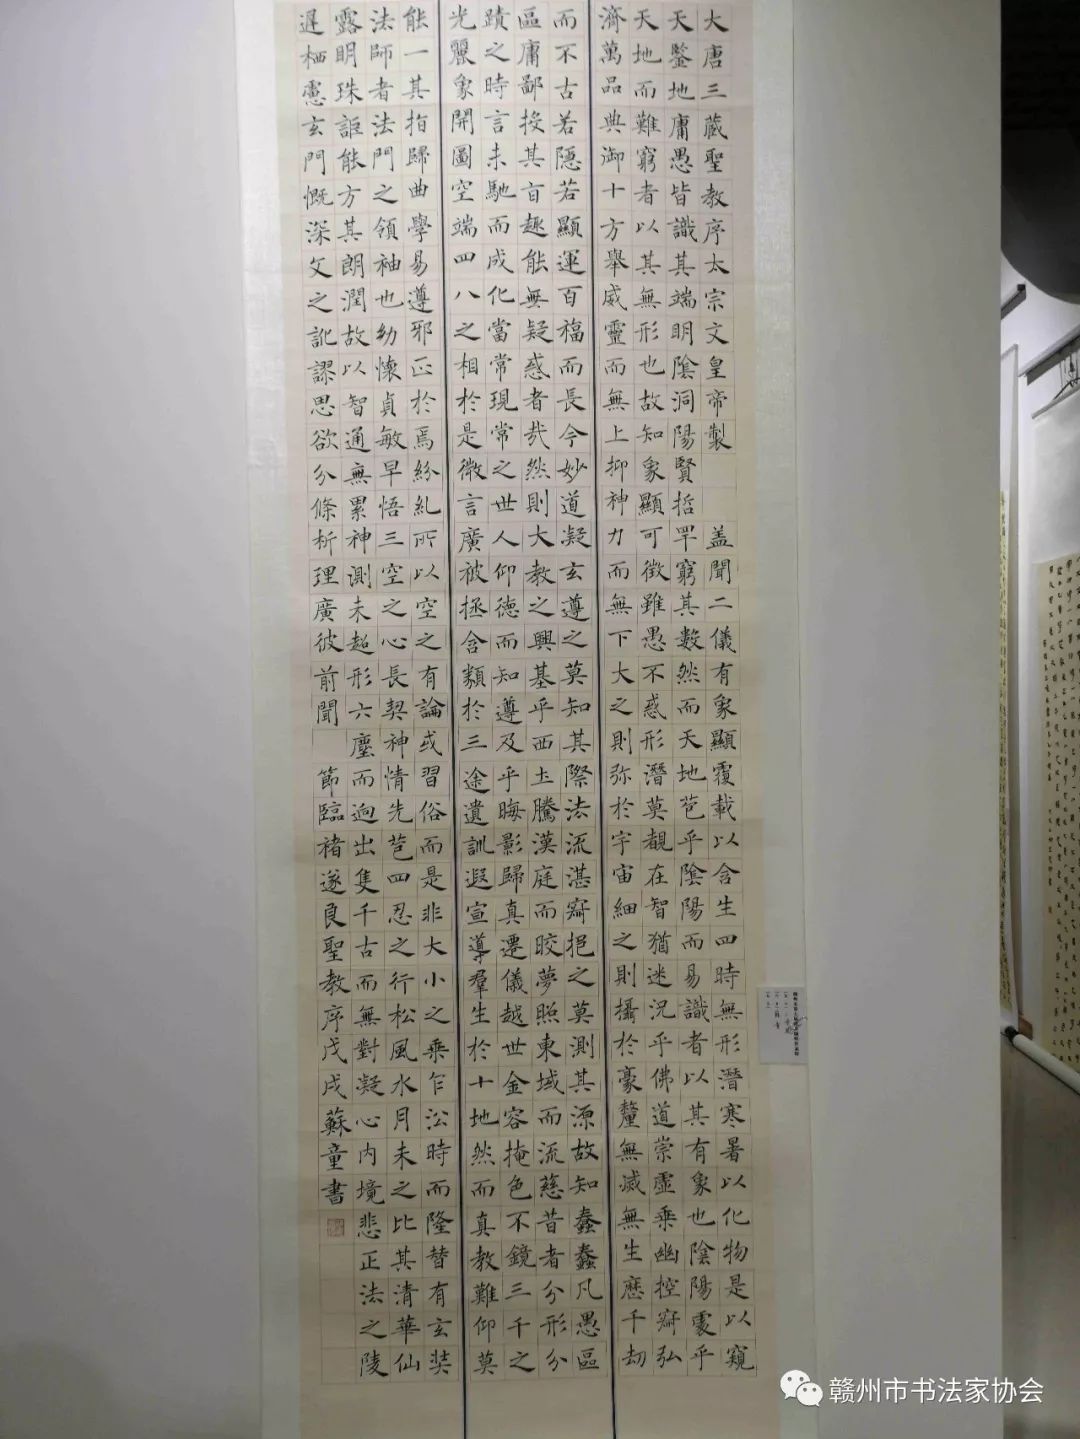 大唐三藏聖教序太宗文皇帝製 盖聞二儀有象顯覆載以含生四時無形潛寒暑以化物是以窺
天鑒地庸愚皆識其端明陰洞陽賢哲罕窮其數然而天地苞乎陰陽而易識者以其有象也陰陽處乎
天地而難窮者以其無形也故知象顯可徵雖愚不惑形潛莫覩在智猶迷況乎佛道崇虛乘幽控寂弘
濟萬品典御十方舉威靈而無上抑神力而無下大之則弥於宇宙細之則攝於豪釐無滅無生歷千劫
而不古若隱若顯運百福而長今妙道凝玄遵之莫知其際法流湛寂挹之莫測其源故知蠢蠢凡愚區
區庸鄙投其旨趣能無疑惑者哉然則大教之興基乎西土騰漢庭而皎夢照東域而流慈昔者分形分
蹟之時言未馳而成化當常現常之世人仰德而知遵及乎晦影歸真遷儀越世金容掩色不鏡三千之
光麗象開圖空端四八之相於是微言廣被拯含類於三途遺訓遐宣導羣生於十地然而真教難仰莫
能一其指歸曲學易遵邪正於焉紛糺所以空之有論或習俗而是非大小之乘乍沿時而隆替有玄奘
法師者法門之領袖也幼懷貞敏早悟三空之心長契神情先苞四忍之行松風水月未之比其清華仙
露明珠詎能方其朗潤故以智通無累神測未超形六塵而迥出隻千古而無對凝心內境悲正法之陵
遲栖慮玄門慨深文之訛謬思欲分條析理廣彼前聞 節臨褚遂良聖教序戊戌蘇童書
赣州市书法家协会